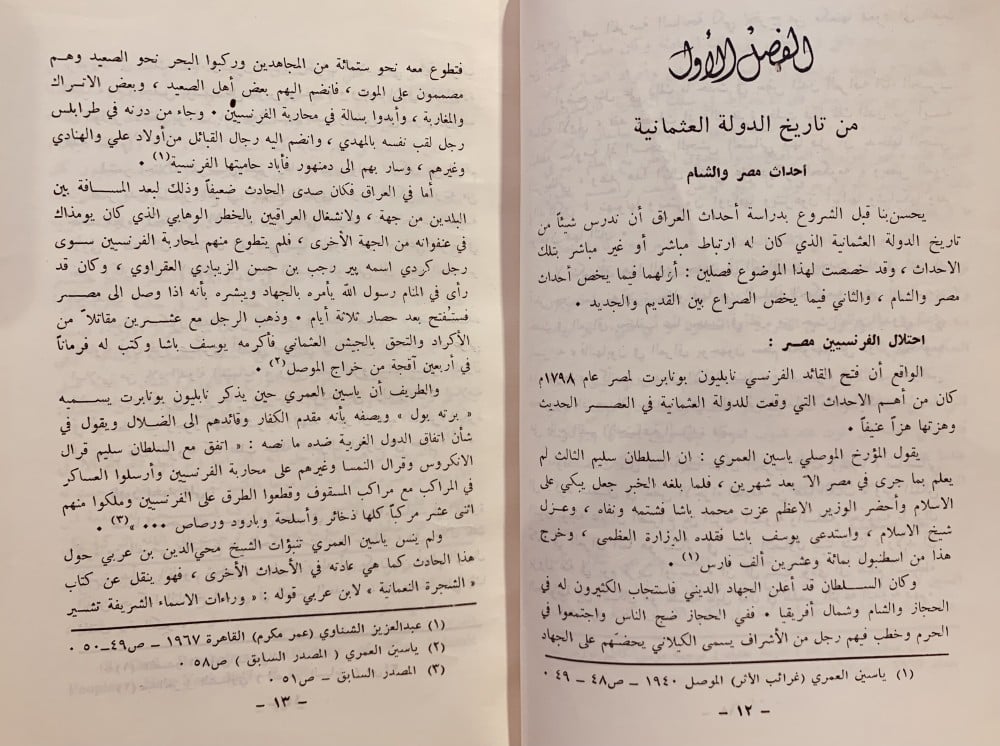 الفصل الأول
من تاريخ الدولة العثمانية
أحداث مصر والشام
يحسن بنا قبل الشروع بدراسة أحداث العراق أن ندرس شيئاً من
تاريخ الدولة العثمانية الذي كان له ارتباط مباشر أو غير مباشر بتلك
الاحداث ، وقد خصصت لهذا الموضوع فصلين : أولهما فيما يخص أحداث
مصر والشام ، والثاني فيما يخص الصراع بين القديم والجديد .
احتلال الفرنسيين مصر :
الواقع أن فتح القائد الفرنسي نابليون بونابرت لمصر عام ١٧٩٨م
كان من أهم الاحداث التي وقعت للدولة العثمانية في العصر الحديث
وهزتها هزاً عنيفاً .
يقول المؤرخ الموصلي ياسين العمري : ان السلطان سليم الثالث لم
يعلم بما جرى في مصر الا بعد شهرين ، فلما بلغه الخبر جعل يبكي على
الاسلام وأحضر الوزير الاعظم عزت محمد باشا فشتمه ونفاه ، وعزل
شيخ الاسلام ، واستدعى يوسف باشا فقلده الوزارة العظمى ، وخرج
هذا من اسطنبول بمائة وعشرين ألف فارس(١) .
وكان السلطان قد أعلن الجهاد الديني فاستجاب الكثيرون له في
الحجاز والشام وشمال أفريقيا . ففي الحجاز ضج الناس واجتمعوا في
الحرم وخطب فيهم رجل من الأشراف يسمى الكيلاني يحضهم على الجهاد
(١) ياسين العمري (غرائب الأثر) الموصل ١٩٤٠ – ص٤٨ – ٤٩ .
– ١٢ –
فتطوع معه نحو ستمائة من المجاهدين وركبوا البحر نحو الصعيد وهم
مصممون على الموت ، فانضم اليهم بعض أهل الصعيد ، وبعض الاتراك
والمغاربة ، وأبدوا بسالة في محاربة الفرنسيين . وجاء من درنه في طرابلس
رجل لقب نفسه بالمهدي ، وانضم اليه رجال القبائل من أولاد علي والهنادي
وغيرهم ، وسار بهم الى دمنهور فأباد حاميتها الفرنسية(١) .
أما في العراق فكان صدى الحادث ضعيفاً وذلك لبعد المسافة بين
البلدين من جهة ، ولانشغال العراقيين بالخطر الوهابي الذي كان يومذاك
في عنفوانه من الجهة الأخرى ، فلم يتطوع منهم لمحاربة الفرنسيين سوى
رجل كردي اسمه پير رجب بن حسن الزيباري العقراوي ، وكان قد
رأى في المنام رسول الله يأمره بالجهاد ويبشره بأنه اذا وصل الى مصر
فستفتح بعد حصار ثلاثة أيام . وذهب الرجل مع عشرين مقاتلاً من
الأكراد والتحق بالجيش العثماني فأكرمه يوسف باشا وكتب له فرماناً
في أربعين آقجة من خراج الموصل(٢) .
والطريف أن ياسين العمري حين يذكر نابليون بونابرت يسميه
« برته بول » ويصفه بأنه مقدم الكفار وقائدهم الى الضلال ويقول في
شأن اتفاق الدول الغربية ضده ما نصه : « اتفق مع السلطان سليم قرال
الانكروس وقرال النمسا وغيرهم على محاربة الفرنسيين وأرسلوا العساكر
في المراكب مع مراكب المسقوف وقطعوا الطرق على الفرنسيين وملكوا منهم
اثنى عشر مركباً كلها ذخائر وأسلحة وبارود ورصاص ... »(٣) .
ولم ينس ياسين العمري تنبؤات الشيخ محي الدين بن عربي حول
هذا الحادث كما هي عادته في الأحداث الأخرى ، فهو ينقل عن كتاب
« الشجرة النعمانية » لابن عربي قوله : « وراءات الاسماء الشريفة تشير
(١) عبدالعزيز الشناوي (عمر مكرم) القاهرة ١٩٦٧ – ص٤٩–٥٠ .
(٢) ياسين العمري ( المصدر السابق ) ص٥٨ .
(٣) المصدر السابق – ص٥١ .
– ١٣ –